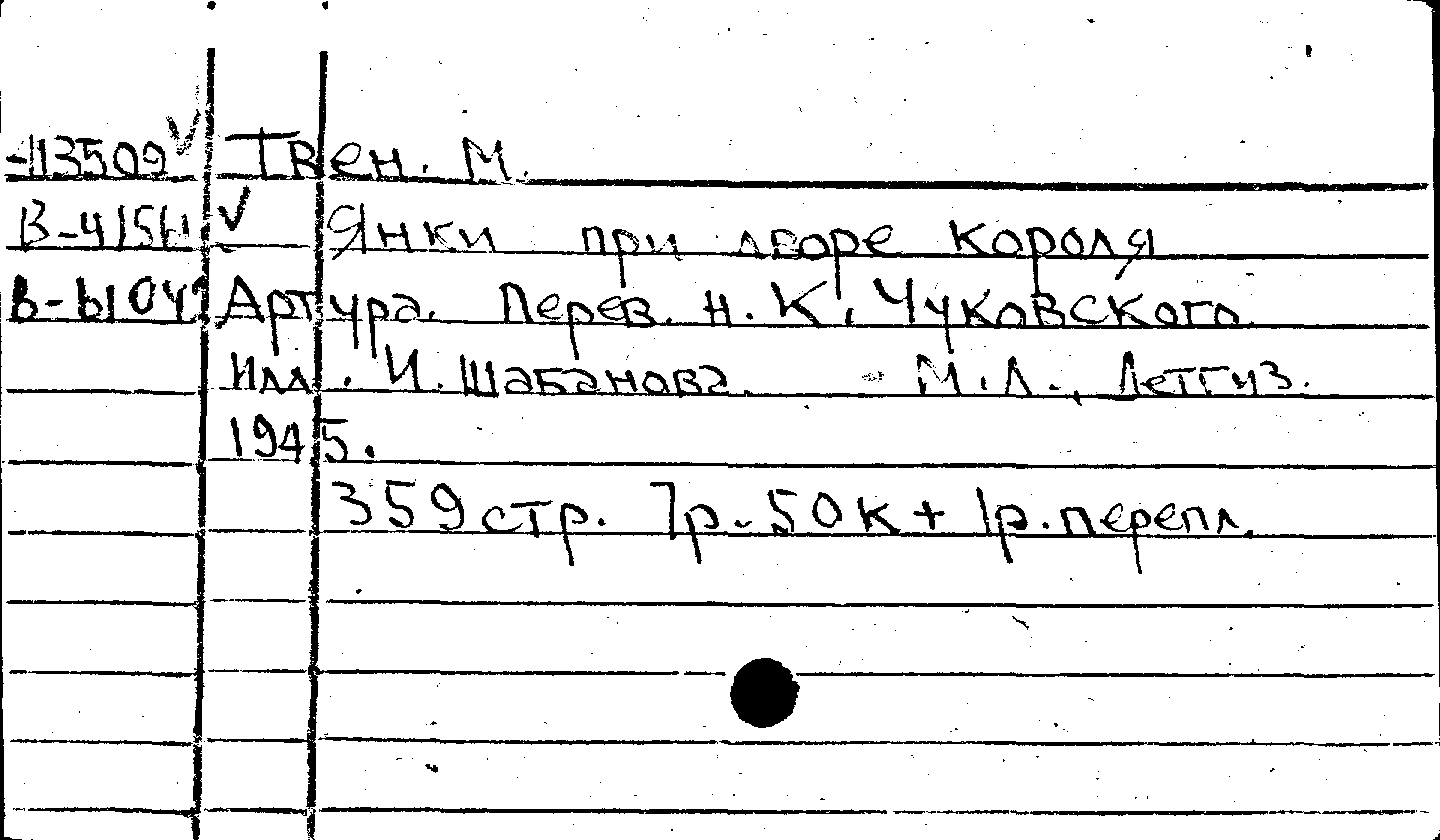 -113509 Твен. М.
Янки при дворе короля
Артура. Перев. Н. К. Чуковского
Илл. И. Шабанова. - М.Л., Детгиз.
1945.
359 стр. 7р. 50к + 1р. перепл.